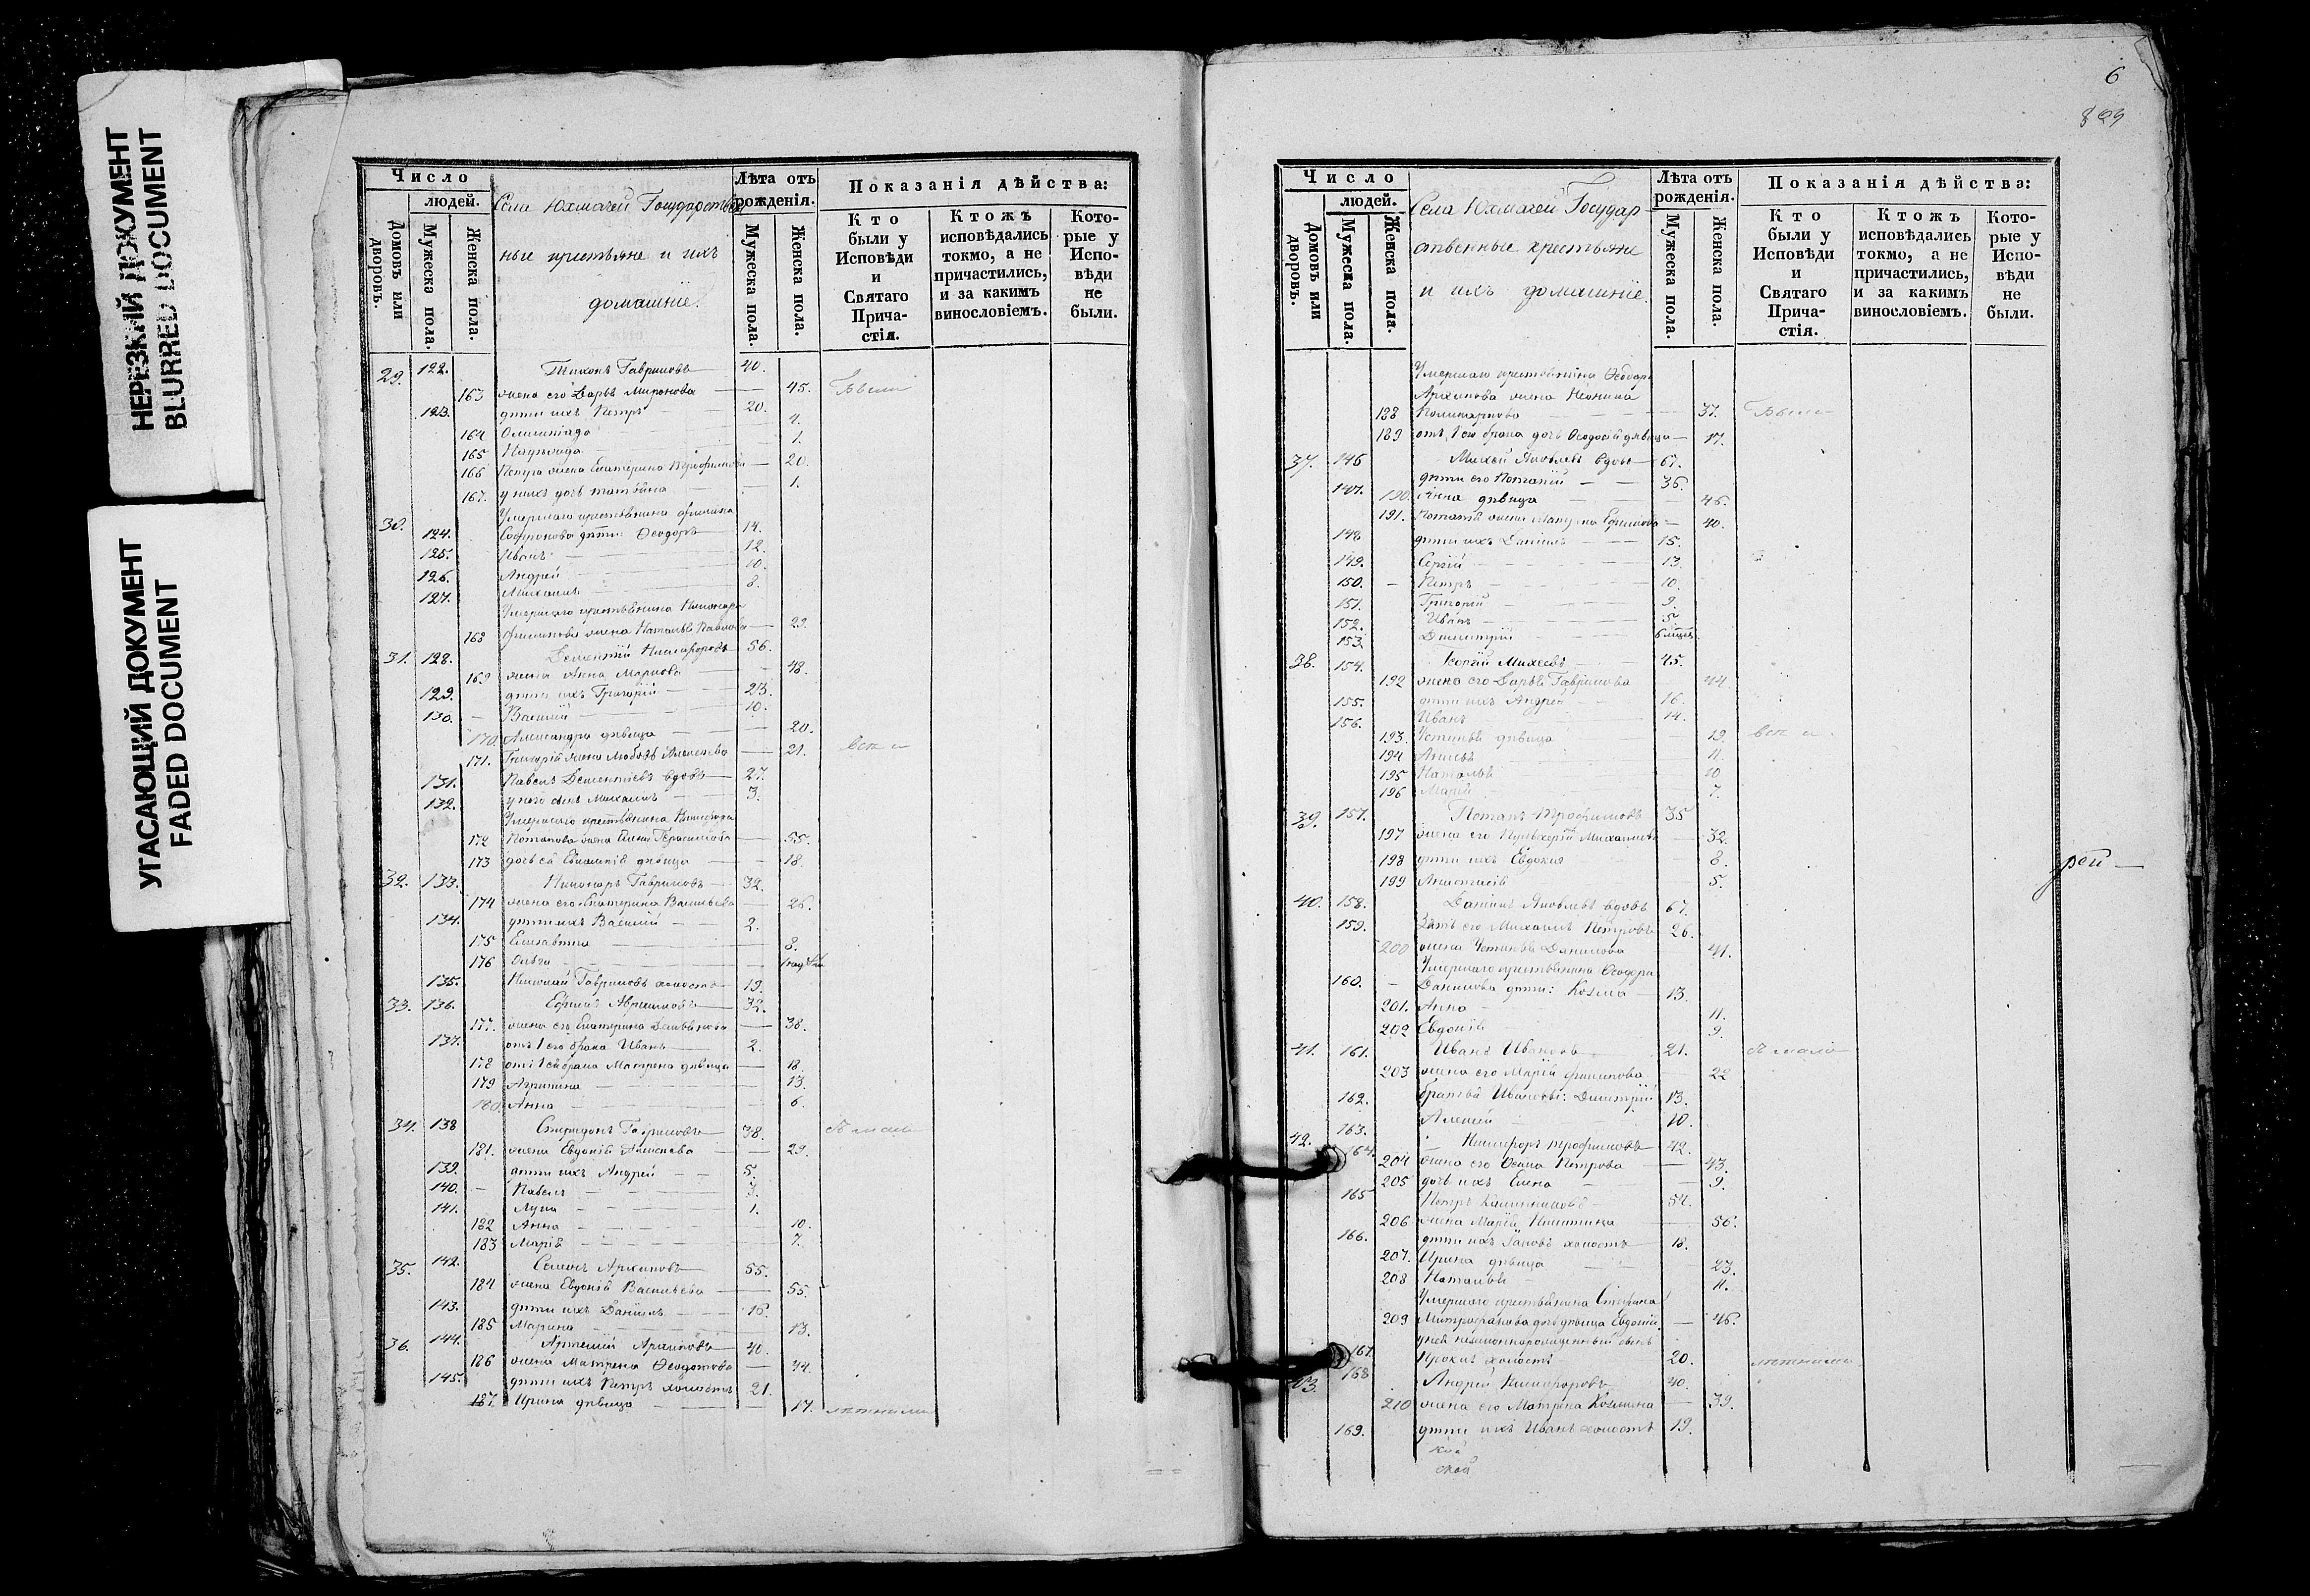 НЕРЕЗКИЙ ДОКУМЕНТ
BLURRED DOCUMENT
УГАСАЮЩИЙ ДОКУМЕНТ
FADED DOCUMENT
Число
людей.
Домовъ или дворовъ.
Мужеска пола.
Женска пола.
Села Юхмачей Государствен
ные крестьяне и ихъ
домашніе.
Лѣта отъ рожденія.
Мужеска пола.
Женска пола.
Показанія дѣйства:
Кто были у Исповѣди и Святаго Причастія.
Ктожъ исповѣдались токмо, а не причастились, и за какимъ винословіемъ.
Которые у Исповѣди не были.
29. 122. Тихонъ Гавриловъ 40.
163 жена его Дарья Миронова 45. Были
123. дѣти ихъ Петръ 20.
164 Олимпіада 4.
165 1.
166 Петра жена Екатерина 20.
167. у нихъ дочь Татьяна 1.
Умершаго крестьянина
30. 124. дѣти: Ѳеодоръ 14.
125. Иванъ 12.
126. Андрей 10.
127. Михаилъ 8.
Умершаго крестьянина
168 Филипова жена Наталья Павлова 29.
31. 128. Дементій Никифоровъ 56.
169 жена Анна Маркова 48.
129. дѣти ихъ Григорій 23.
130. Василій 10.
170. Александра дѣвица 20.
171. Григорія жена Любовь Алексѣева 21. Всѣ
131. Павелъ Дементіевъ вдовъ 27.
132. у него сынъ Михаилъ 3.
Умершаго крестьянина
172 Потапова жена Герасимова 55.
173 дочь ея дѣвица 18.
32. 133. Никаноръ Гавриловъ 32.
174 жена его Екатерина Васильева 26.
134. дѣти ихъ Василій 2.
175 Елисавета 8.
176 Ольга
135. Николай Гавриловъ холостъ 19.
33. 136. Ефимъ Абрамовъ 32.
177. жена его Екатерина Демьянова 38.
137. отъ 1 его брака Иванъ 2.
178 отъ 1 ея брака Матрена дѣвица 18.
179 Агрипина 13.
180. Анна 6.
34. 138 Спиридонъ Гавриловъ 38.
181. жена Евдокія Алексѣева 29.
139. дѣти ихъ Андрей 5.
140. Павелъ 3.
141. Лука 1.
182 Анна 10.
183 Марія 7.
35. 142. Семенъ Архиповъ 55.
184 жена Евдокія Васильева 55.
143. дѣти ихъ Даніилъ 16.
185 Марина 13.
36. 144. Артемій Архиповъ 40.
186 жена Матрена Ѳеодотова 44.
145. дѣти ихъ Петръ холостъ 21.
187. Ирина дѣвица 17.
6
829
Число
людей.
Домовъ или дворовъ.
Мужеска пола.
Женска пола.
Села Юхмачей Государ
ственные крестьяне
и ихъ домашніе.
Лѣта отъ рожденія.
Мужеска пола.
Женска пола.
Показанія дѣйства:
Кто были у Исповѣди и Святаго Причастія.
Ктожъ исповѣдались токмо, а не причастились, и за какимъ винословіемъ.
Которые у Исповѣди не были.
Умершаго крестьянина Ѳеодора
Архипова жена Неонила
188 Поликарпова 37. Были
189 отъ 1 его брака дочь Ѳеодосія дѣвица 17.
37. 146 Михей Яковлевъ вдовъ 67.
147. дѣти его Потапій 36.
190. Анна дѣвица 46.
191. Потапія жена Ефимова 40.
148 дѣти ихъ Даніилъ 15.
149. Сергій 13.
150. Петръ 10.
151. Григорій 9.
152. Иванъ 5
153. Дмитрій 6 мѣсяц.
38. 154. Георгій Михеевъ 45.
192 жена его Дарья Гаврилова 44.
155. дѣти ихъ Андрей 16.
156. Иванъ 14.
193. Устинья дѣвица 19. Всѣ
194 Анисья 11.
195 Наталья 10
196 Марія 7.
39. 157. Потапъ Трофимовъ 35
197 жена его Пульхерія Михайлова 32.
198 дѣти ихъ Евдокия 8.
199 Анастасія 5.
рой
40. 158. Даніилъ Яковлевъ вдовъ 67.
159. Зять его Михаилъ Петровъ 26.
200 жена Устинья Данилова 41.
Умершаго крестьянина Ѳеодора
160. Данилова дѣти: Козма 13.
201. Анна 11.
202 Евдокія 9.
41. 161. Иванъ Ивановъ 21.
203 жена его Марія Филипова 22
162. братья Ивановы: Дмитрій 13.
163. Алексій 10.
42. 164. Никифоръ Трофимовъ 42.
204 жена его Петрова 43.
205 дочь ихъ Елена 9.
165 Петръ 54.
206 жена Марія Никитина 56.
166. дѣти ихъ Іаковъ холостъ 18.
207. Ирина дѣвица 23.
208 Наталья 11.
Умершаго крестьянина Стефана
209 Митрофанова дочь дѣвица Евдокія 46.
у ней незаконнорожденный сынъ
167. Прокла холостъ 20.
43. 168 Андрей Никифоровъ 40.
210 жена его Матрена Козмина 39.
169. дѣти ихъ Иванъ холостъ 19.